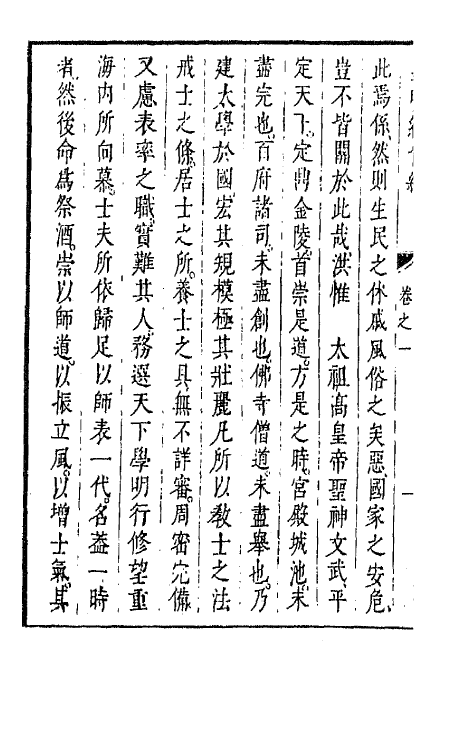 卷之一
此焉係然則生民之休戚風俗之美惡國家之安危
豈不皆關於此哉洪惟　太祖高皇帝聖神文武平
定天下定鼎金陵首崇是道方是之時宮殿城池未
盡完也百府諸司未盡創也佛寺僧道未盡舉也乃
建太學於國宏其規模極其壯麗凡所以敎士之法
戒士之條居士之所養士之具無不詳審周密完備
又慮表率之職實難其人務選天下學明行修望重
海內所向慕士夫所依歸足以師表一代名葢一時
者然後命爲祭酒崇以師道以振立風以增士氣其